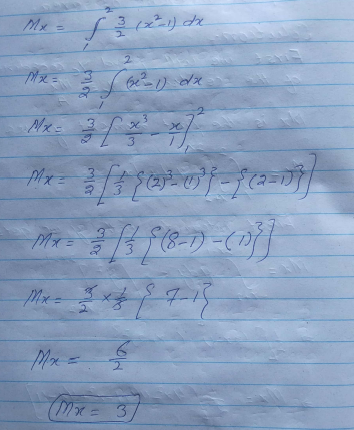 Mx = ∫₁² 3/2 (x²-1) dx
Mx = 3/2 ∫₁² (x²-1) dx
Mx = 3/2 [x³/3 - x/1]₁²
Mx = 3/2 [1/3 {(2)³-(1)³} - {(2-1)³}]
Mx = 3/2 [1/3 {(8-1) - (1)³}]
Mx = 3/2 × 1/3 { 7-1}
Mx = 6/2
Mx = 3